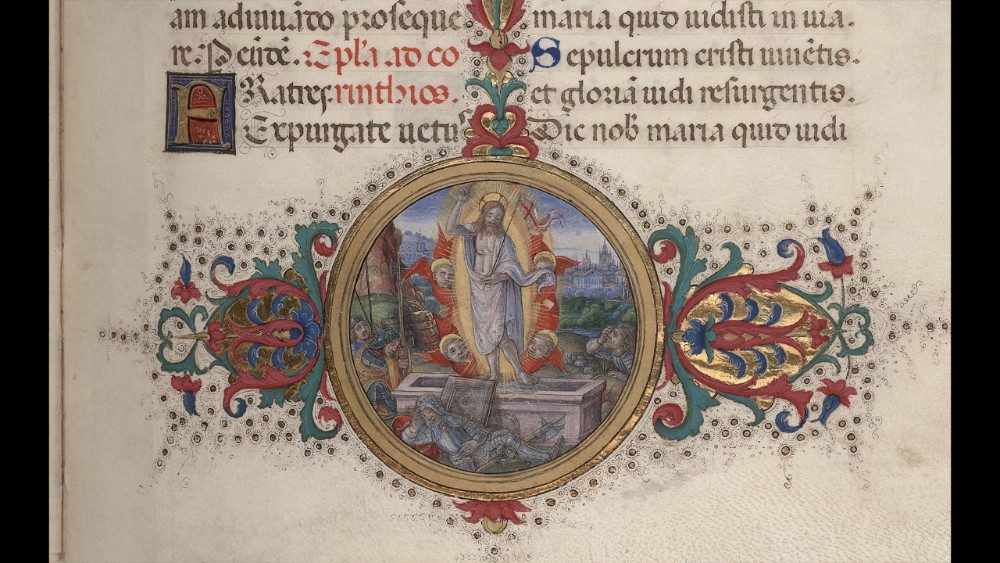 am adiuuādo proseque
re. P eūdē. Epl'a ad co
FRatres. rinthios.
Expurgate uetu
maria quid uidisti in uia.
Sepulcrum cristi uiuētis.
et gloriā uidi resurgentis.
Dic nob' maria quid uidi